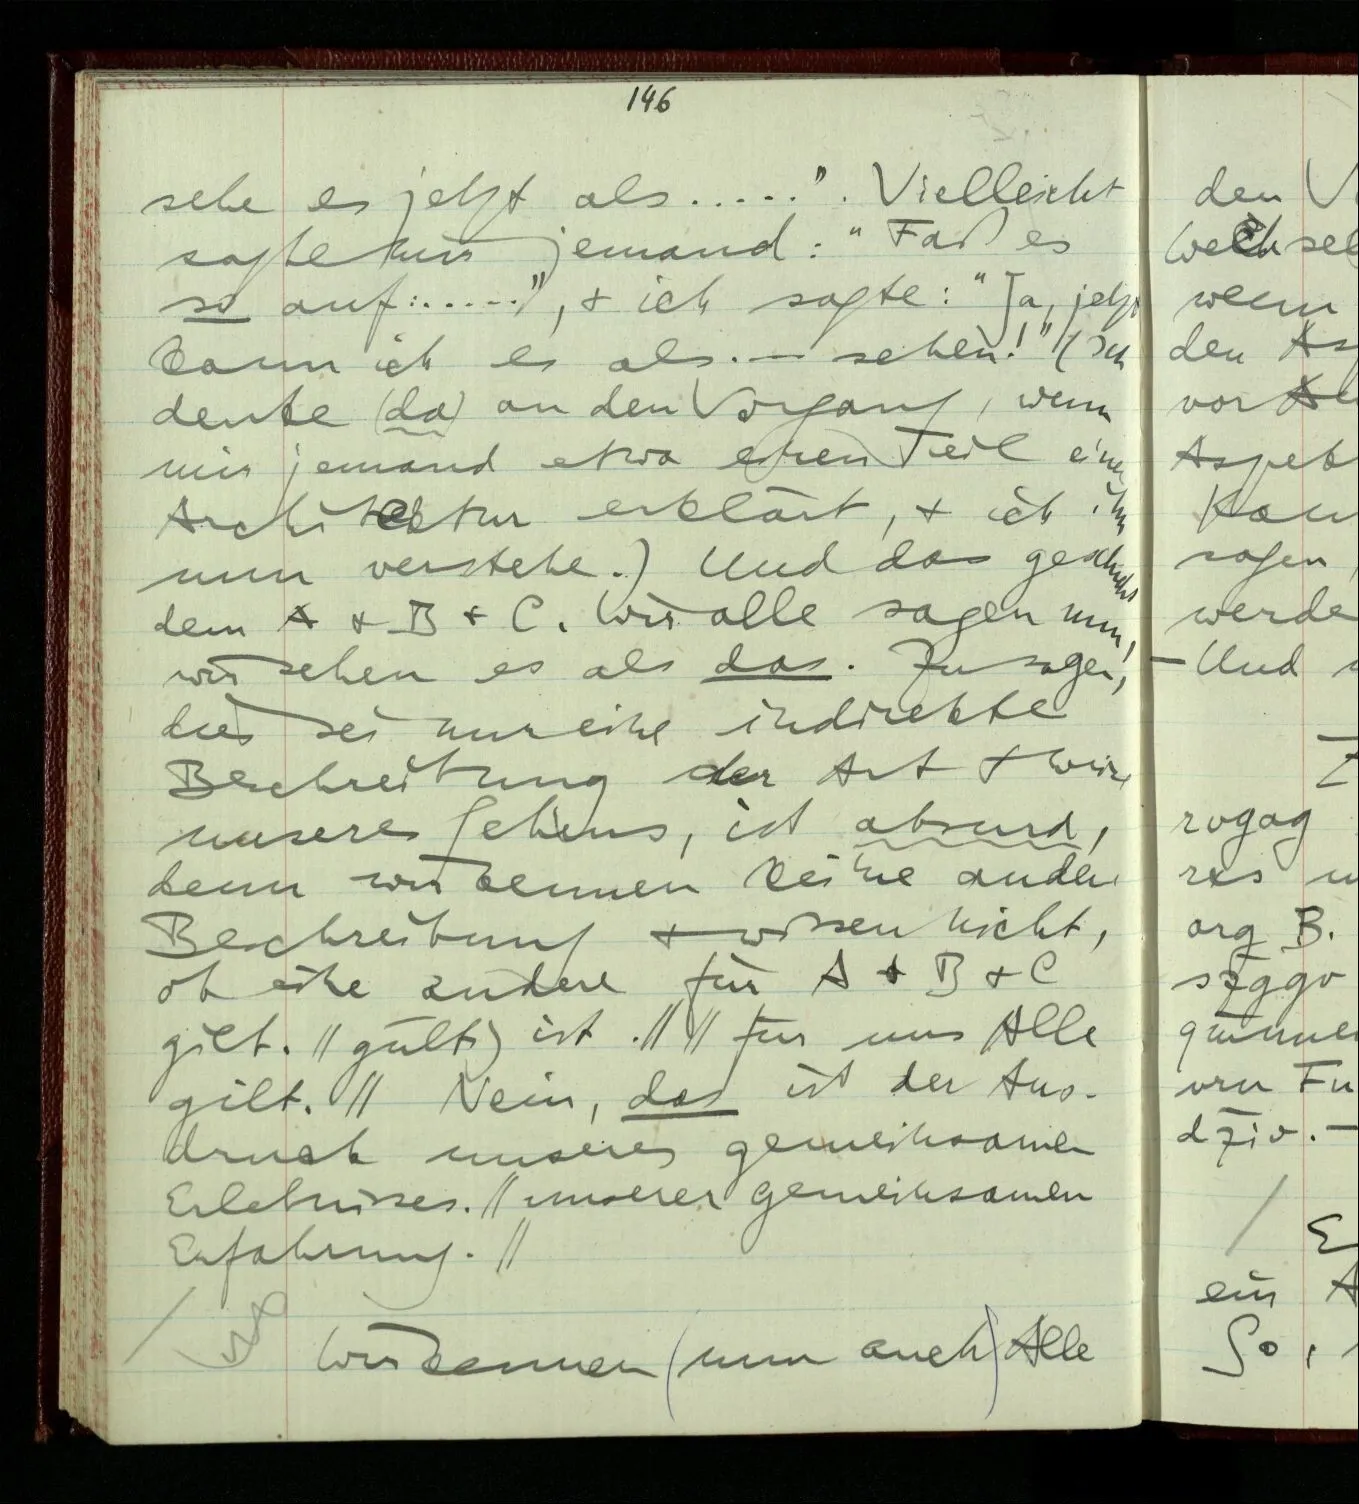 146
sehe es jetzt als.....". Vielleicht
sagte mir jemand: "Faß es
so auf:.....", & ich sagte: "Ja, jetzt
kann ich es als..— sehen!" (Ich
denke (da) an den Vorgang, wenn
mir jemand etwa einen Teil einer
Architektur erklärt, & ich ihn
nun verstehe.) Und das geschieht
dem A & B & C. Wir alle sagen nun,
wir sehen es als das. Zu sagen,
dies sei nur eine indirekte
Beschreibung der Art & Weise
unseres Sehens, ist absurd,
denn wir kennen keine andere
Beschreibung & wissen nicht,
ob eine andere für A & B & C
gilt. // gült) ist .// // für uns Alle
gilt. // Nein, das ist der Aus-
druck unseres gemeinsamen
Erlebnisses. // unserer gemeinsamen
Erfahrung. //
/
Wir kennen (nun auch) Alle
den
Wechsel
wenn
den
vor
Aspekt
sagen,
werde
— Und
rvgag
rxs
org B.
szggv
vrn Fu
dziv. —
/ E
ein A
So,